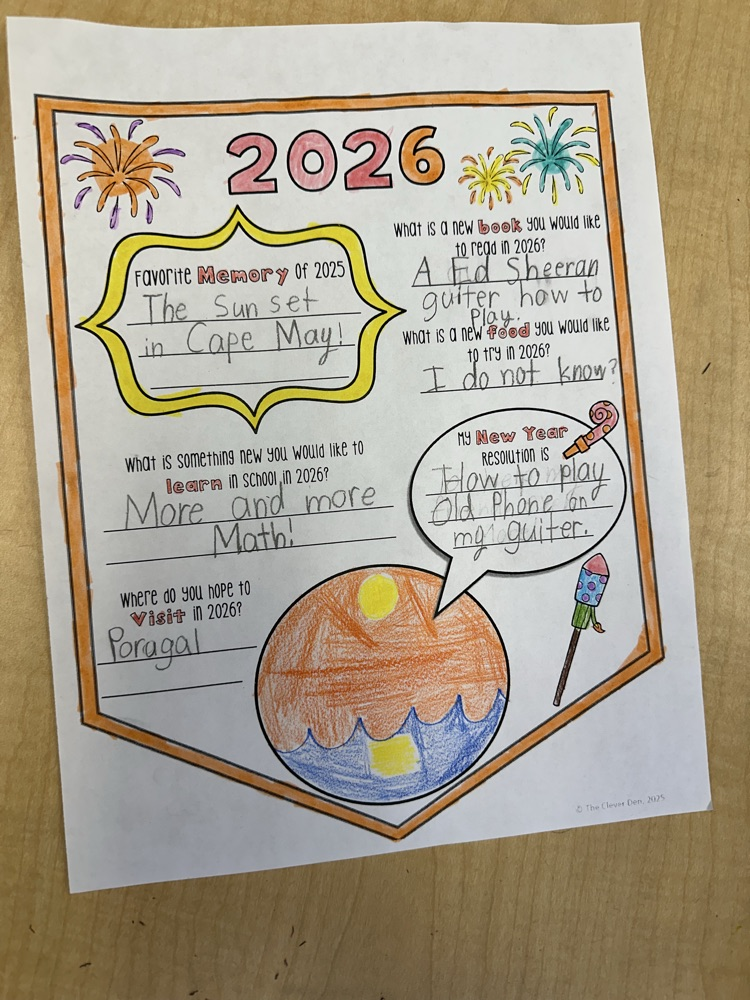 2026
Favorite Memory Of 2025
The Sun set
in Cape May!
What is a new book you would like
to read in 2026?
A Ed Sheeran
guiter how to
Play.
What is a new food you would like
to try in 2026?
I do not know?
What is something new you would like to
learn in school in 2026?
More and more
Math!
My New Year
Resolution is
How to play
Old Phone on
my guiter.
Where do you hope to
Visit in 2026?
Poragal
© The Clever Den, 2025